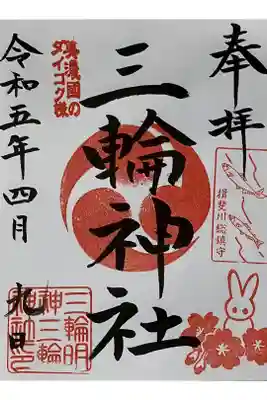 奉拝
揖斐川総鎮守
三輪神社
美濃國の
ダイコク様
令和五年四月九日
三輪明
神三輪
神社之印